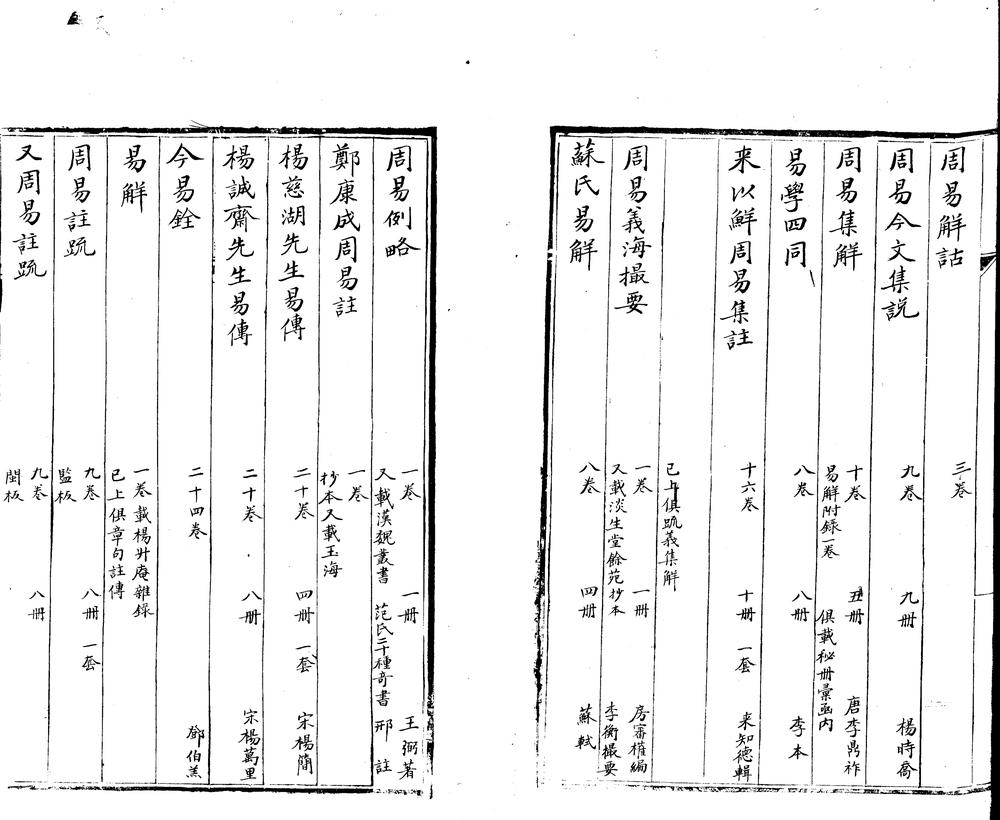 周易解詁 三卷
周易今文集説 九卷 九册 楊時喬
周易集解 十卷 五册 唐李鼎祚
易解附録一卷 俱載秘册彙函内
易學四同 八卷 八册 李本
来以鮮周易集註 十六卷 十册 一套 来知德輯
已上俱疏義集解
周易義海撮要 一卷 一册 房審權編
又載淡生堂餘苑抄本 李衡撮要
蘇氏易解 八卷 四册 蘇軾
周易例略 一卷 一册 王弼著
又載漢魏叢書 范氏二十種奇書 邢 註
鄭康成周易註 一卷
抄本又載玉海
楊慈湖先生易傳 二十卷 四册 一套 宋楊簡
楊誠齋先生易傳 二十卷 八册 宋楊萬里
今易銓 二十四卷 鄧伯羔
易解 一卷載楊升庵雜錄
已上俱章句註傳
周易註疏 九卷 八册 一套
監板
又周易註疏 九卷 八册
閩板